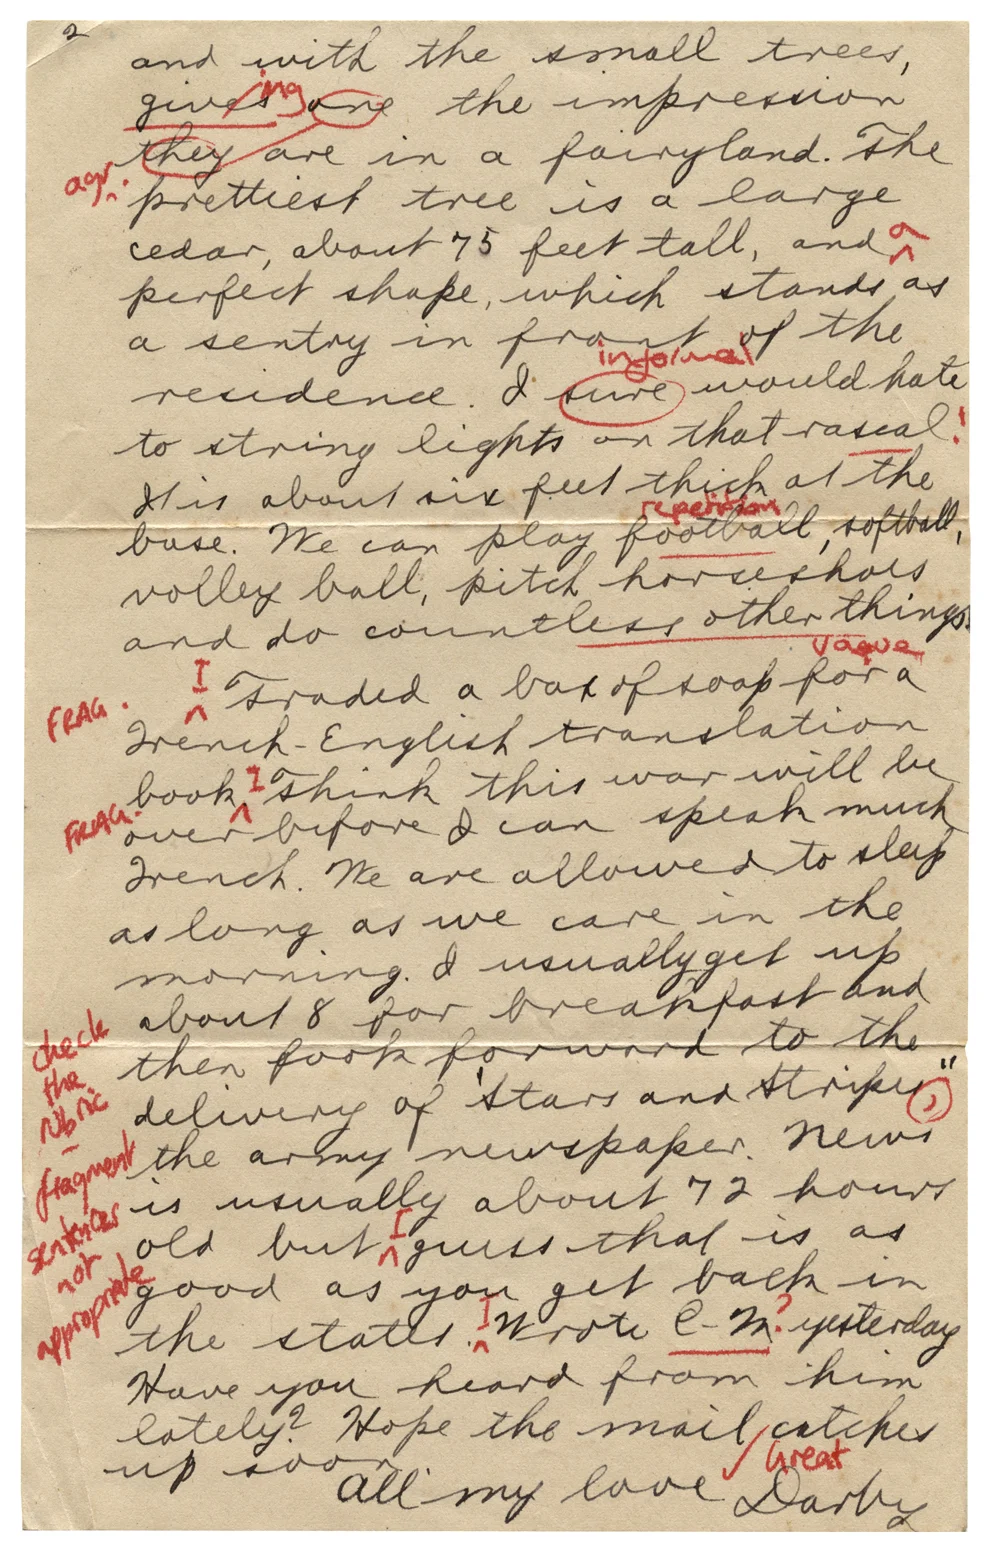 2
and with the small trees,
ing
gives one the impression
they are in a fairyland. The
agr.
prettiest tree is a large
cedar, about 75 feet tall, and a
perfect shape, which stands as
a sentry in front of the
informal
residence. I sure would hate
to string lights on that rascal!
It is about six feet thick at the
repetition
base. We can play football, softball,
volley ball, pitch horseshoes
and do countless other things.
vague
I
FRAG. Traded a box of soap for a
French-English translation
book. I Think this war will be
FRAG. over before I can speak much
French. We are allowed to sleep
as long as we care in the
morning. I usually get up
about 8 for breakfast and
then look forward to the
delivery of "Stars and Stripes",
the army newspaper. News
is usually about 72 hours
old but I guess that is as
good as you get back in
the states. I Wrote C-M? yesterday
Have you heard from him
lately? Hope the mail catches
up soon.
Great
All my love Darby
check
the
rubric
-
fragment
sentences
not
appropriate